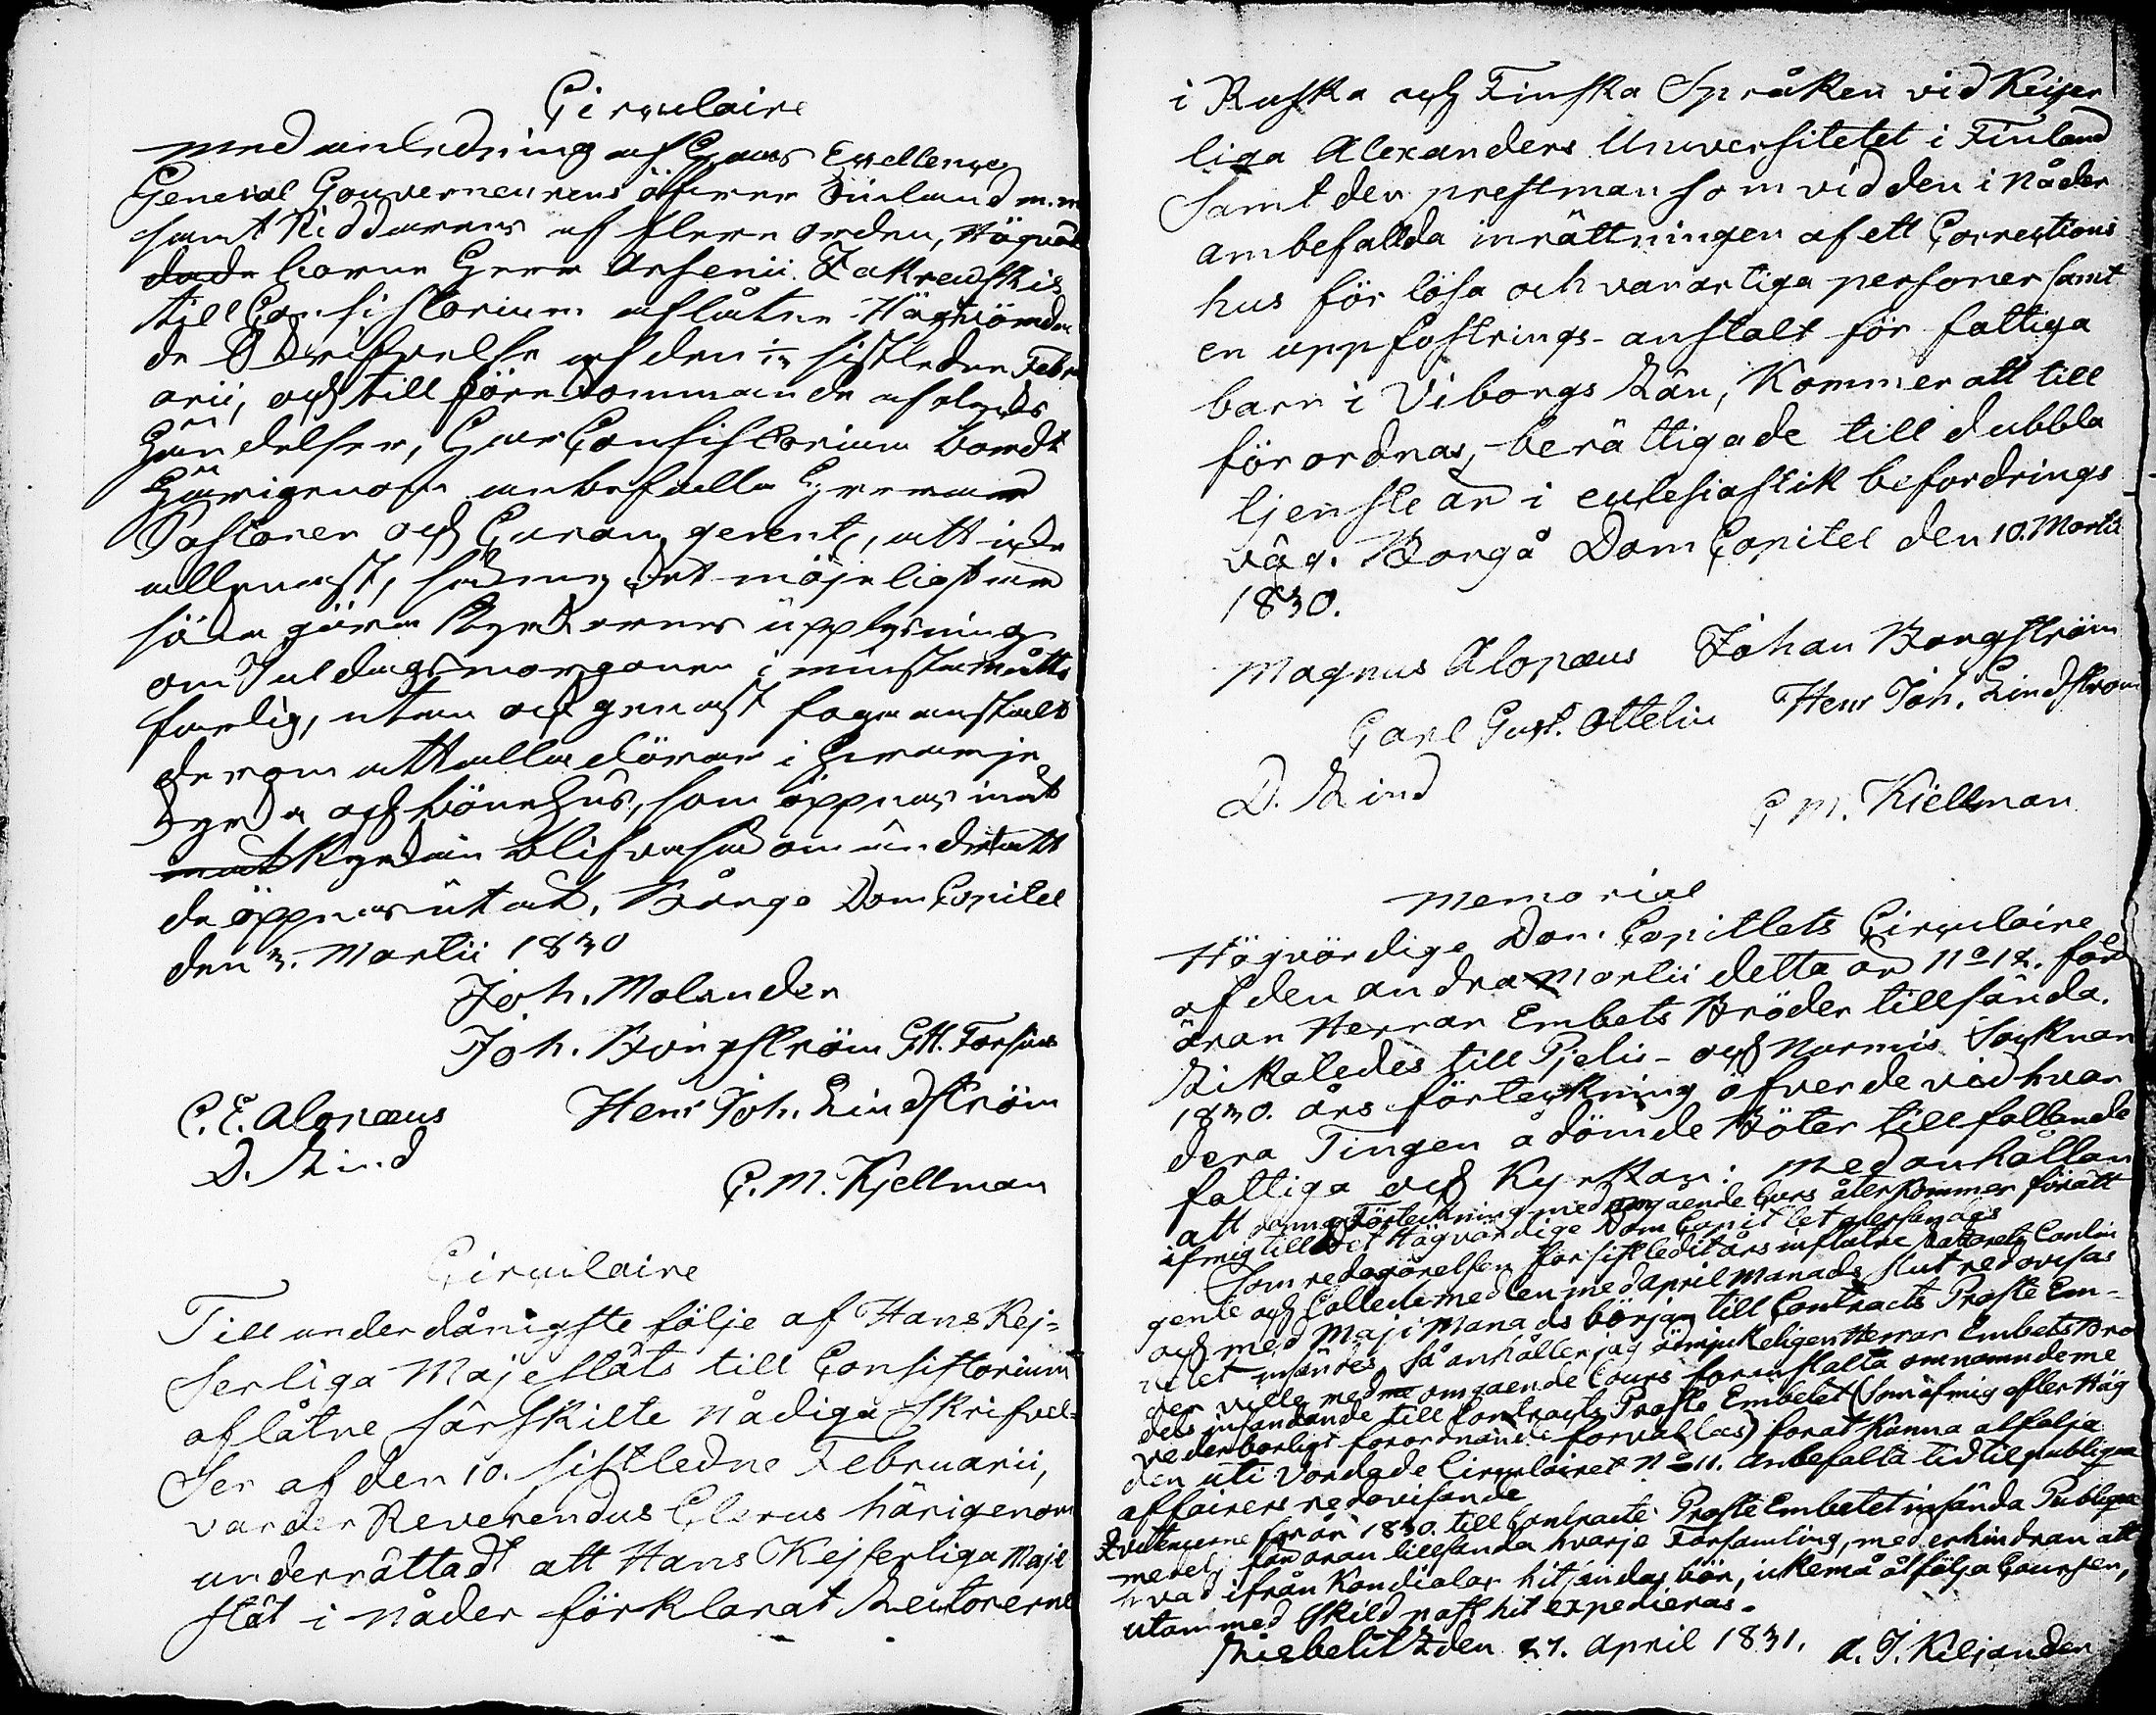 Circulaire
med anledning af Hans Excellence
General Gouverneurens öfver Finland m.m.
samt Riddarens af flere Orden, Högväl
dade borne Herr Arsenii Zakrewskis
till Consistorium aflåtne Högtvörda
de Skrifvelse af den sistledne Febru
arii, och till förekommande af
händelser, har Consistorium bordt
härigenom anbefalla Herrar
Pastorer och Curam gerent., att icke
allenast, så möjeligt med
göra Kyrkornes upplysning
om Juldagsmorgonen i minsta måtto
farlig, utan och genast foga anstalt
derom att alla dörrar i hvarje
Kyrka och bönehus, som öppnas inåt
inåt Kyrkan blifva så omändrat att
de öppnas utåt. Borgo Dom Capitel
den 3. Martii 1830
Joh. Molander
Joh. Borgström G.H. Forsius
C. E. Alopæus Henr Joh. Lindström
D. Lind
C. M. Kjellman
Circulaire
Till underdånigste följe af Hans Kej=
serliga Majestäts till Consistorium
aflåtne särskilte Nådiga Skrifvel=
ser af den 10. sistledne Februarii,
varder Reverendus Clerus härigenom
underrättadt att Hans Kejserliga Maje
stät i nåder förklarat Lectorerne
i Ryska och Finska Språken vid Kejser
liga Alexanders Universitetet i Finland
Samt den prestman som vid den i nåder
ambefallda inrättningen af ett Corrections
hus för lösa och vanartiga personer samt
en uppfostrings-anstalt för fattiga
barn i Viborgs Län, Kommer att till
förordnas, berättigade till dubbla
tjenstår i eclesiastik befordrings
väg. Borgå Dom Capitel den 10. Martii
1830.
Magnus Alopæus Johan Borgström
Carl Gust. Ottelin Henr Joh. Lindström
D. Lind
C M. Kiellman
Memorial
Högvördige Dom Capitlets Circulaire
af den andra Martii detta år No 12. får
äran Herrar Embets Bröder tillsända.
Likaledes till Pjelis- och Nurmis Socknar
1830. års förteckning öfver de vid hvar
dera Tingen ådömde Böter tillfallande
fattiga och Kyrkan: Med anhållan
att denna förteckning med omgående Curs återkommer för att
af mig till det Högvördige Dom Capitlet öfversändas
Som redogörelsen för sistledit års influtne Contin
gente och Collectemedlen med April Månads slut redovisas
och med Maji Månads början till Contracts Proste Em-
betet insändes, så anhåller jag ödmjukeligen Herrar Embets Brö
der ville med me omgående Cours föranstalta omnämnde me
dels insändande till Contracts Proste Embetet (Som af mig efter Hög
vederbörligt förordnande förvaltas) för att kunna åtfölja
den uti Vördade Circulairet No 11. anbefalta tid til publiqua
affairers redovisande
Qvittencerne för år 1830. till Contracts Proste Embetet insända Publiqua
medel, får äran tillsända hvarje Församling, med erhindran att
hvad ifrån Kandialar hitsändas bör, icke må åtfölja Coursen,
utan med skild post hit expedieras.
Libelitz den 27. April 1831. A. J. Kiljander